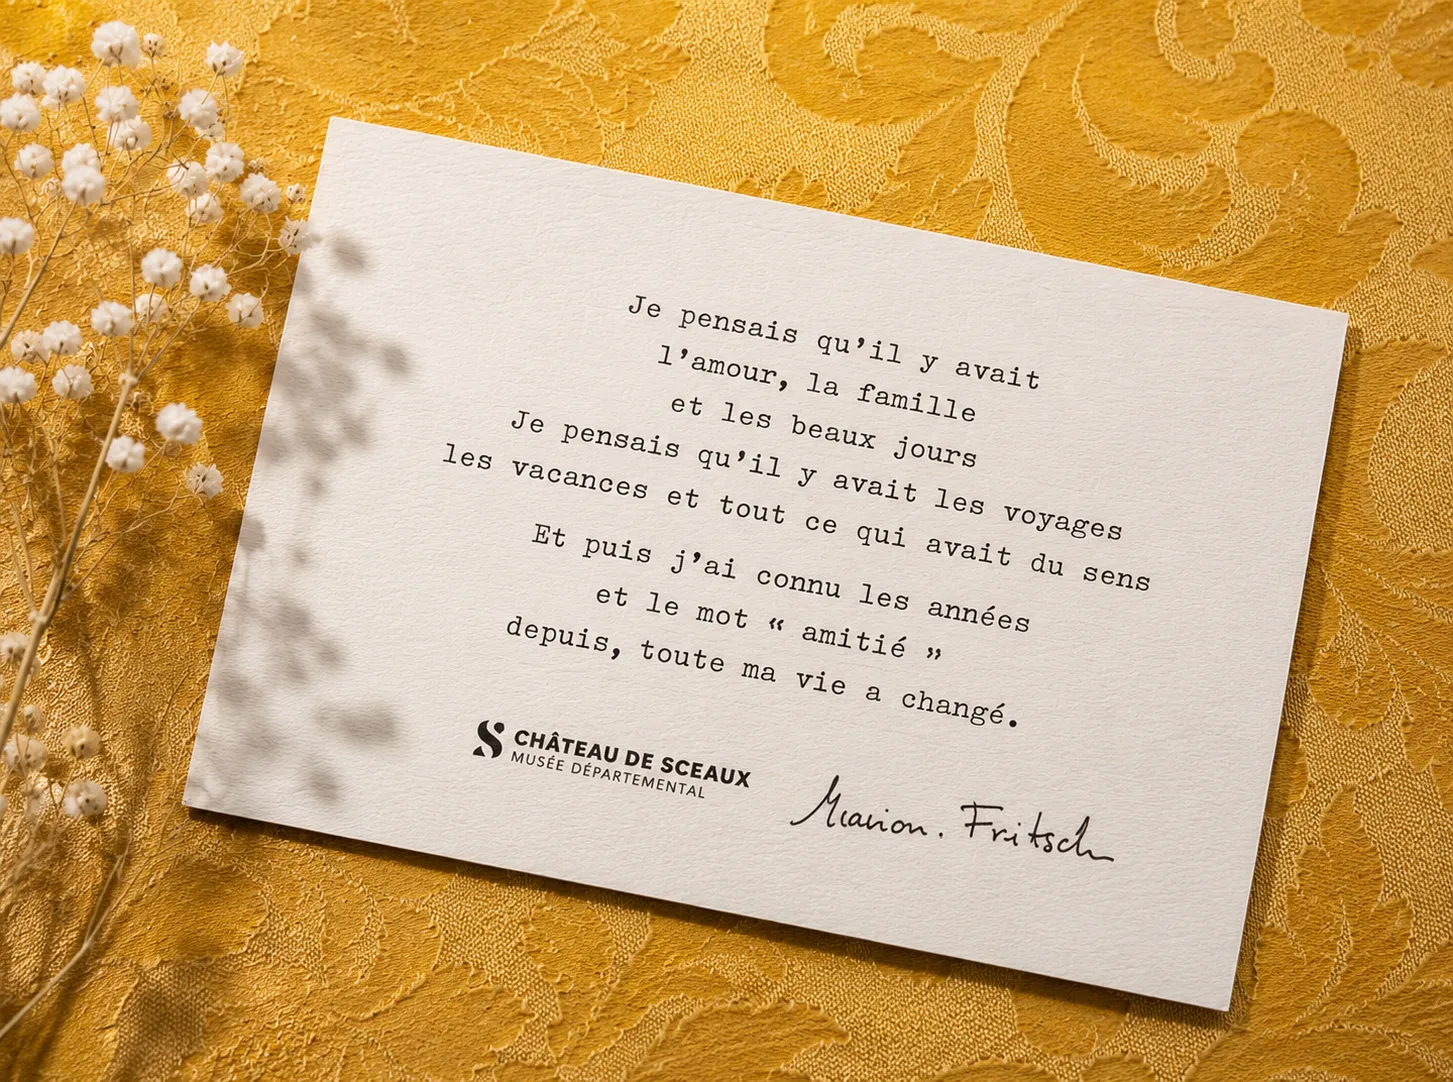 Je pensais qu’il y avait
l’amour, la famille
et les beaux jours
Je pensais qu’il y avait les voyages
les vacances et tout ce qui avait du sens
Et puis j’ai connu les années
et le mot “ amitié ”
depuis, toute ma vie a changé.
CHÂTEAU DE SCEAUX
MUSÉE DÉPARTEMENTAL
Marion. Fritsch